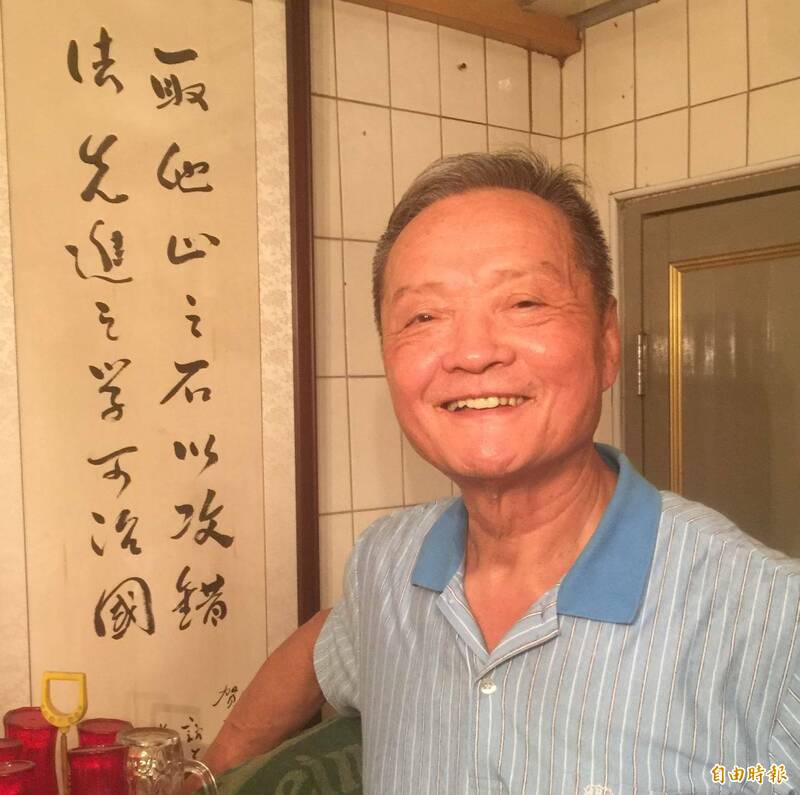 取他山之石以攻錯
法先進之學可治國
賀
訪
自由時報